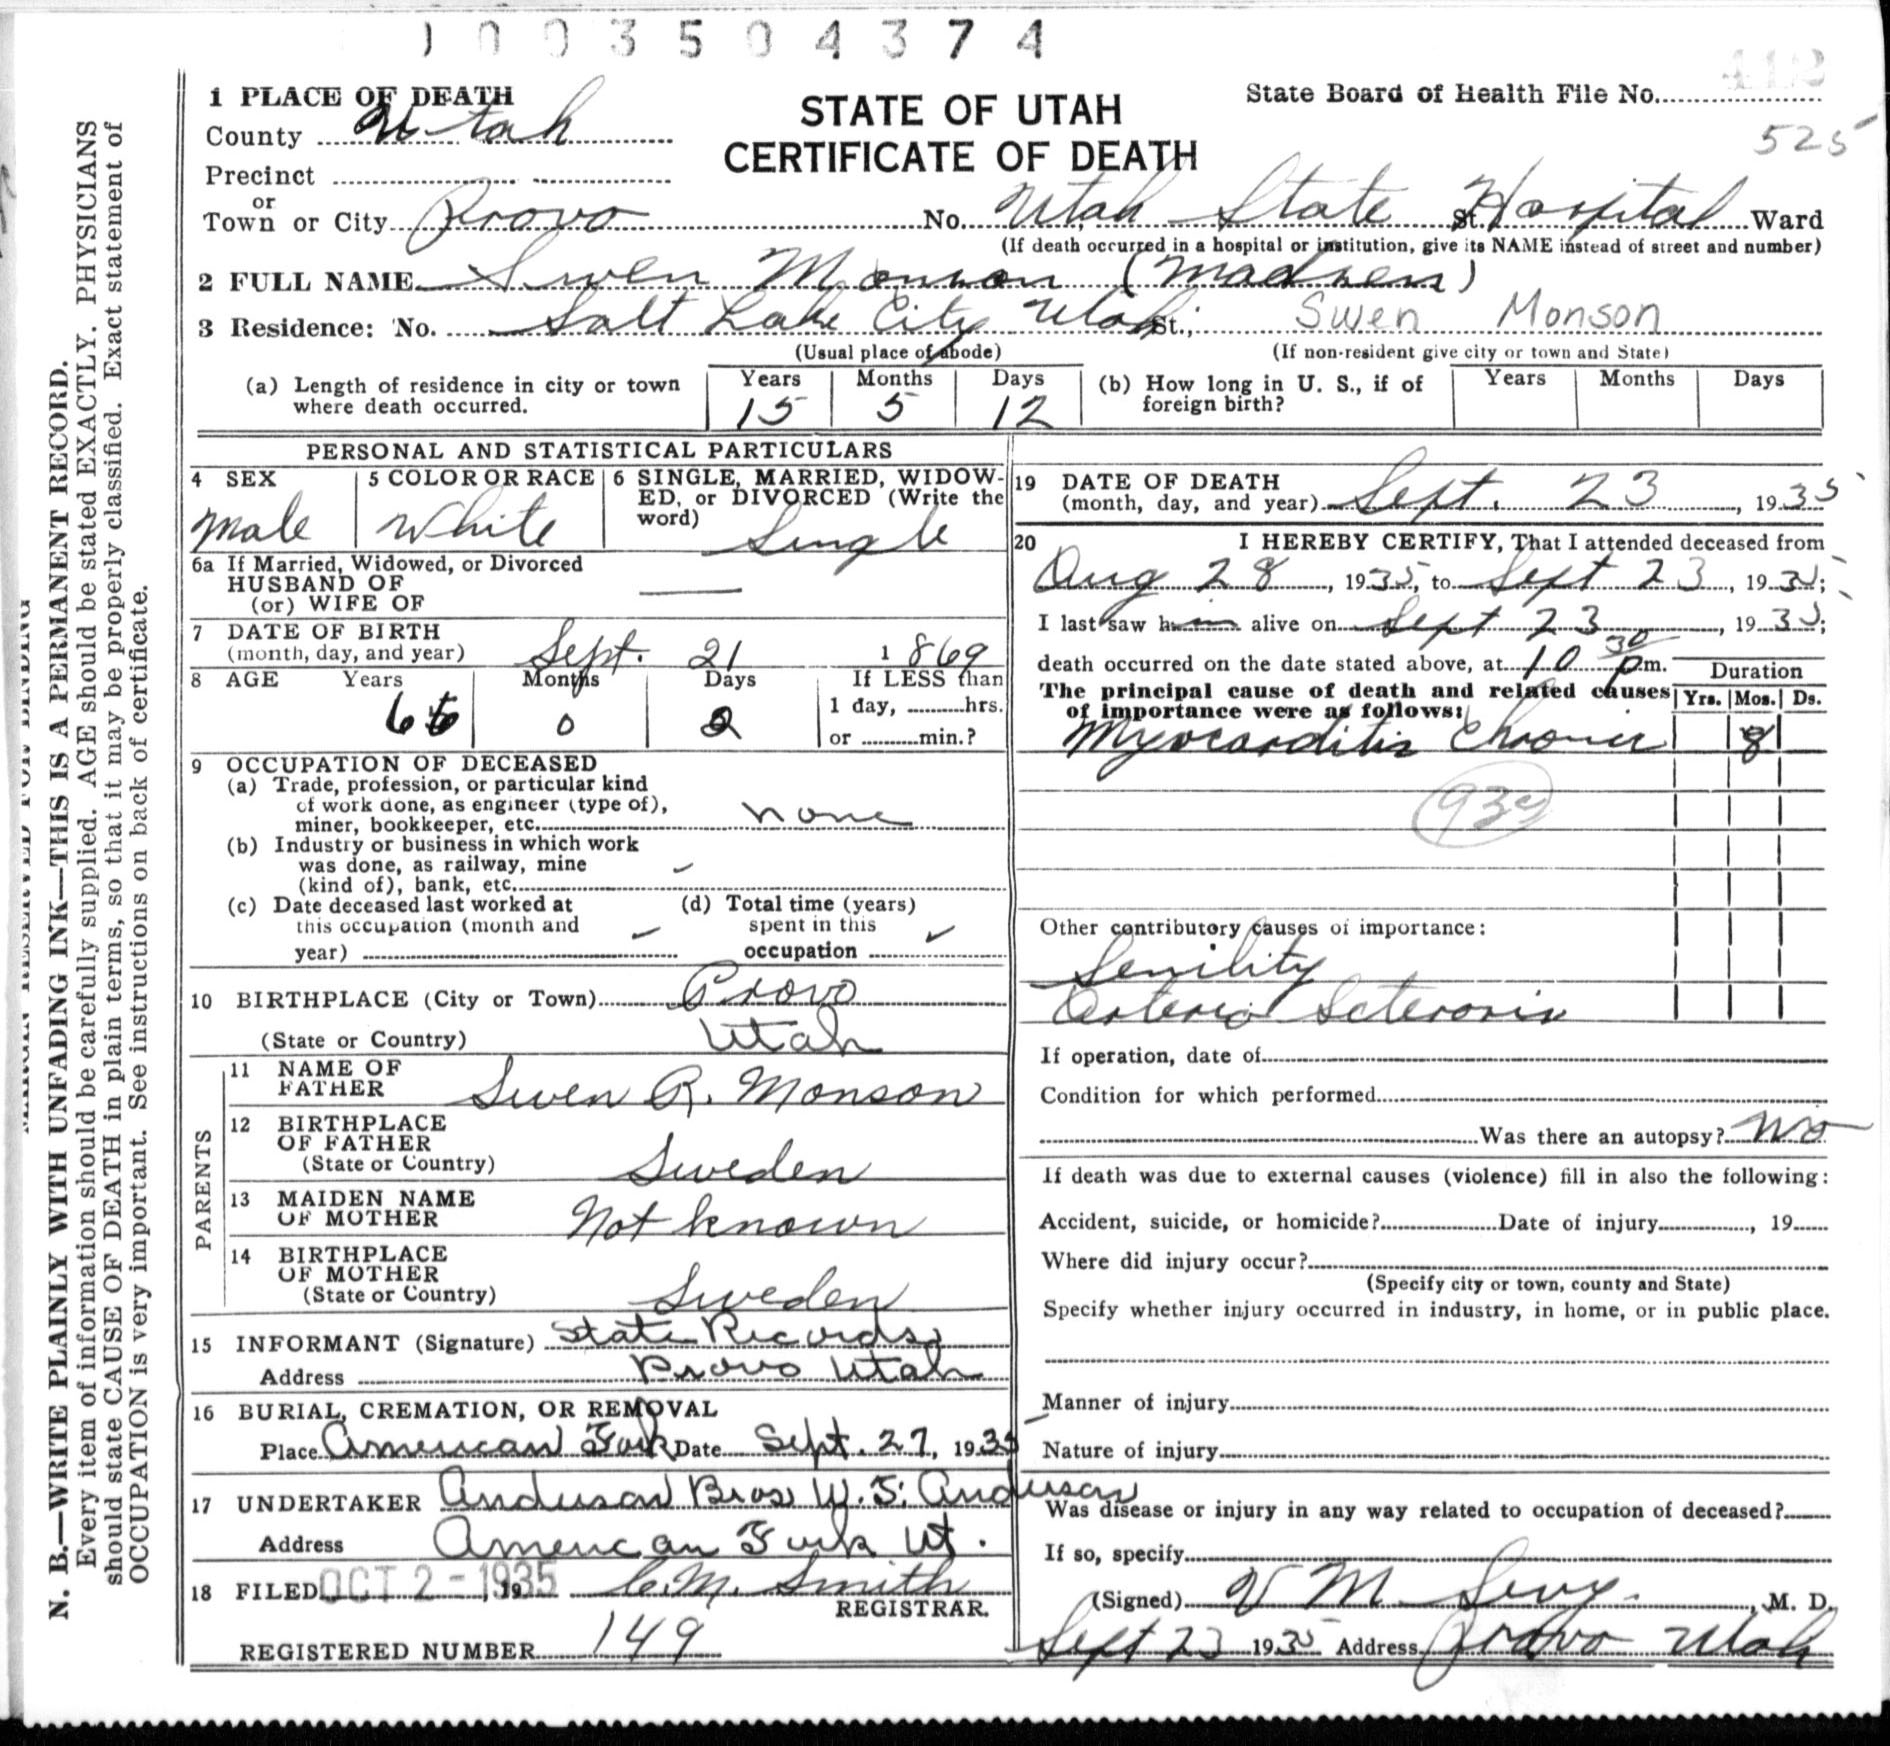 1003504374
1 PLACE OF DEATH
County Utah
STATE OF UTAH
CERTIFICATE OF DEATH
State Board of Health File No.
412
525
Precinct
or
Town or City Provo No. Utah State St. Hospital Ward
(If death occurred in a hospital or institution, give its NAME instead of street and number)
2 FULL NAME Swen Monson (Madsen)
3 Residence: No. Salt Lake City Utah St., Swen Monson
(Usual place of abode) (If non-resident give city or town and State)
(a) Length of residence in city or town where death occurred. Years 15 Months 5 Days 12
(b) How long in U. S., if of foreign birth? Years Months Days
PERSONAL AND STATISTICAL PARTICULARS
4 SEX Male
5 COLOR OR RACE White
6 SINGLE, MARRIED, WIDOW-
ED, or DIVORCED (Write the
word) Single
6a If Married, Widowed, or Divorced
HUSBAND OF
(or) WIFE OF —
7 DATE OF BIRTH
(month, day, and year) Sept. 21 1869
8 AGE Years Months Days If LESS than
66 0 2 1 day, hrs.
or min.?
9 OCCUPATION OF DECEASED
(a) Trade, profession, or particular kind
of work done, as engineer (type of),
miner, bookkeeper, etc. none
(b) Industry or business in which work
was done, as railway, mine
(kind of), bank, etc.
(c) Date deceased last worked at
this occupation (month and
year)
(d) Total time (years)
spent in this
occupation
10 BIRTHPLACE (City or Town) Provo
(State or Country) Utah
PARENTS
11 NAME OF
FATHER Swen R. Monson
12 BIRTHPLACE
OF FATHER
(State or Country) Sweden
13 MAIDEN NAME
OF MOTHER Not known
14 BIRTHPLACE
OF MOTHER
(State or Country) Sweden
15 INFORMANT (Signature) State Records
Address Provo Utah
16 BURIAL, CREMATION, OR REMOVAL
Place American Fork Date Sept. 27, 1935
17 UNDERTAKER Anderson Bros W. S. Anderson
Address American Fork Ut.
18 FILED OCT 2 - 1935, 19 C. M. Smith
REGISTRAR.
REGISTERED NUMBER 149
19 DATE OF DEATH
(month, day, and year) Sept. 23, 1935
20 I HEREBY CERTIFY, That I attended deceased from
Aug 28, 1935, to Sept 23, 1935;
I last saw him alive on Sept 23, 1935;
death occurred on the date stated above, at 10 30 p m.
Duration
The principal cause of death and related causes
of importance were as follows:
Yrs. Mos. Ds.
Myocarditis Chronic 8
93c
Other contributory causes of importance:
Senility
Arterio Sclerosis
If operation, date of
Condition for which performed
Was there an autopsy? No
If death was due to external causes (violence) fill in also the following:
Accident, suicide, or homicide? Date of injury, 19
Where did injury occur?
(Specify city or town, county and State)
Specify whether injury occurred in industry, in home, or in public place.
Manner of injury
Nature of injury
Was disease or injury in any way related to occupation of deceased?
If so, specify
(Signed) V M Sevy, M. D.
Sept 23 1935 Address Provo Utah
N. B.—WRITE PLAINLY WITH UNFADING INK—THIS IS A PERMANENT RECORD.
Every item of information should be carefully supplied. AGE should be stated EXACTLY. PHYSICIANS
should state CAUSE OF DEATH in plain terms, so that it may be properly classified. Exact statement of
OCCUPATION is very important. See instructions on back of certificate.